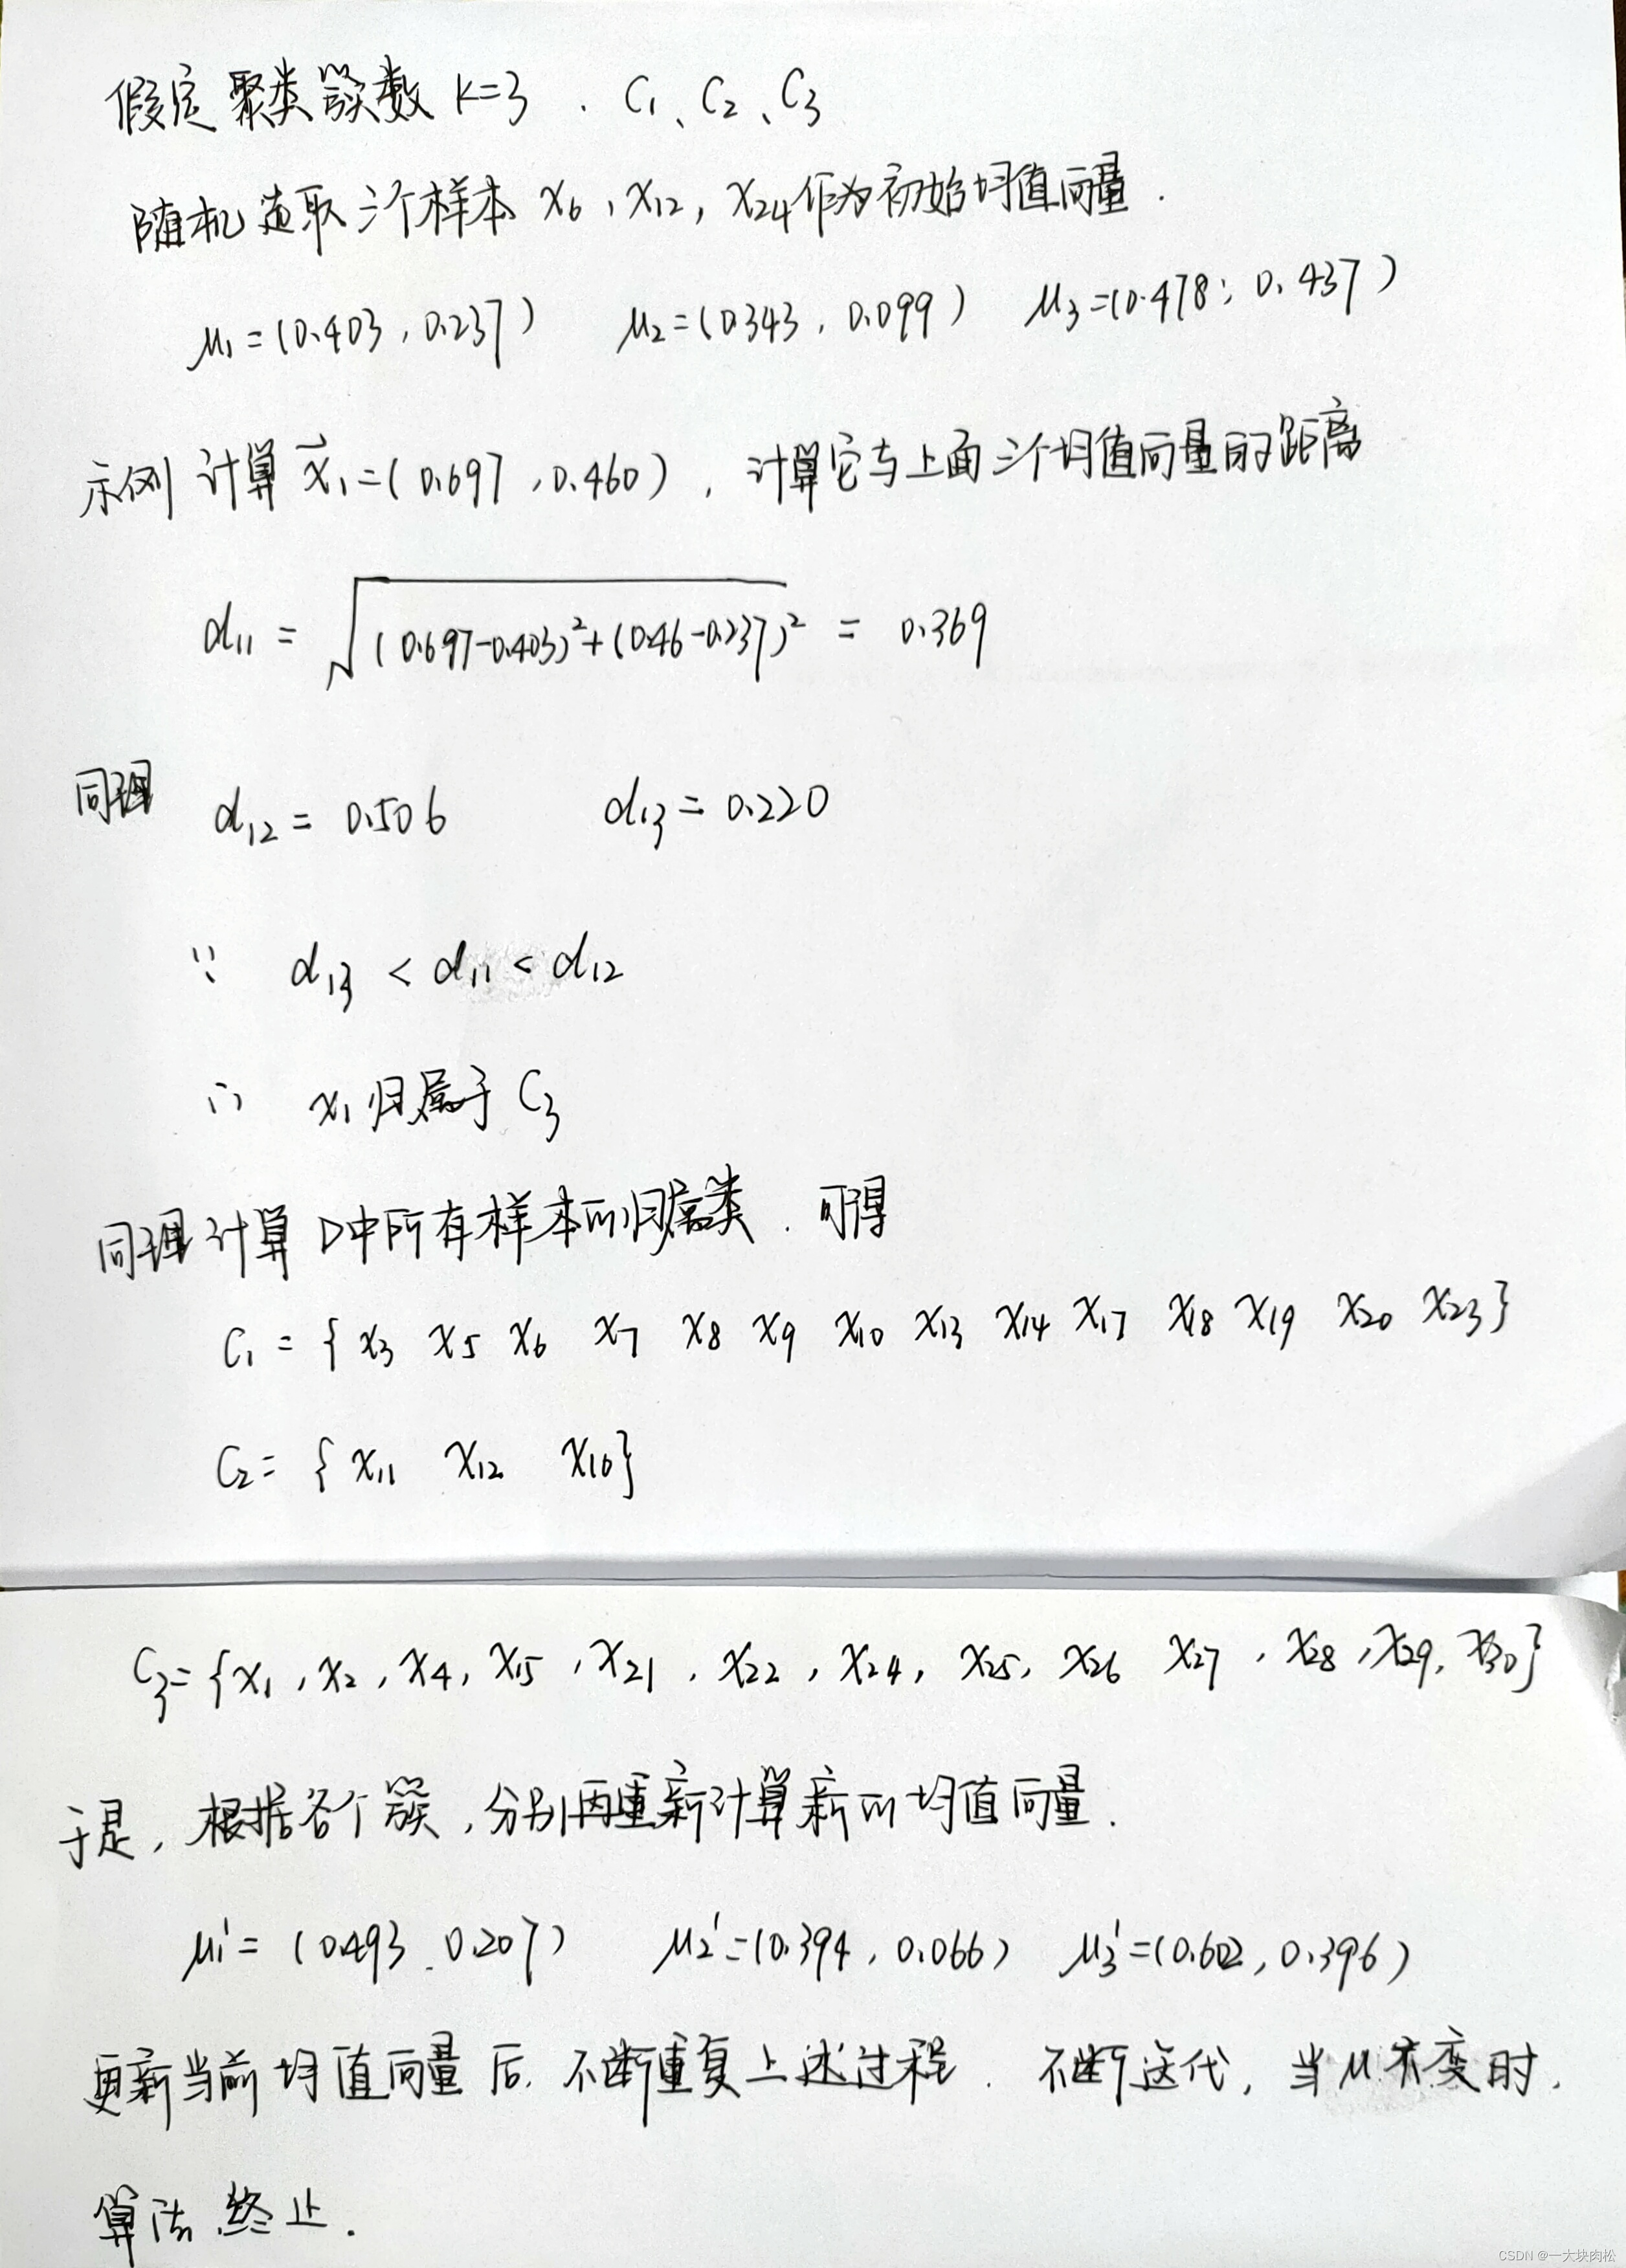 假定聚类簇数 k=3 . C₁、C₂、C₃
随机选取三个样本 x₆, x₁₂, x₂₄作为初始均值向量.
μ₁=(0.403, 0.237) μ₂=(0.343, 0.099) μ₃=(0.478; 0.437)
示例 计算 x⃗₁=(0.697, 0.460), 计算它与上面三个均值向量的距离
d₁₁ = √(0.697-0.403)²+(0.46-0.237)² = 0.369
同理 d₁₂ = 0.506 d₁₃ = 0.220
∵ d₁₃ < d₁₁ < d₁₂
∴ x₁归属于 C₃
同理计算 D中所有样本的归属类. 可得
C₁ = { x₃ x₅ x₆ x₇ x₈ x₉ x₁₀ x₁₃ x₁₄ x₁₇ x₁₈ x₁₉ x₂₀ x₂₃ }
C₂ = { x₁₁ x₁₂ x₁₆ }
C₃ = { x₁, x₂, x₄, x₁₅, x₂₁, x₂₂, x₂₄, x₂₅, x₂₆ x₂₇, x₂₈, x₂₉, x₃₀ }
于是, 根据各个簇, 分别再重新计算新的均值向量.
μ₁' = (0.493, 0.207) μ₂' = (0.394, 0.066) μ₃' = (0.602, 0.396)
更新当前均值向量后, 不断重复上述过程. 不断迭代, 当μ不变时,
算法终止.
CSDN @一大块肉松